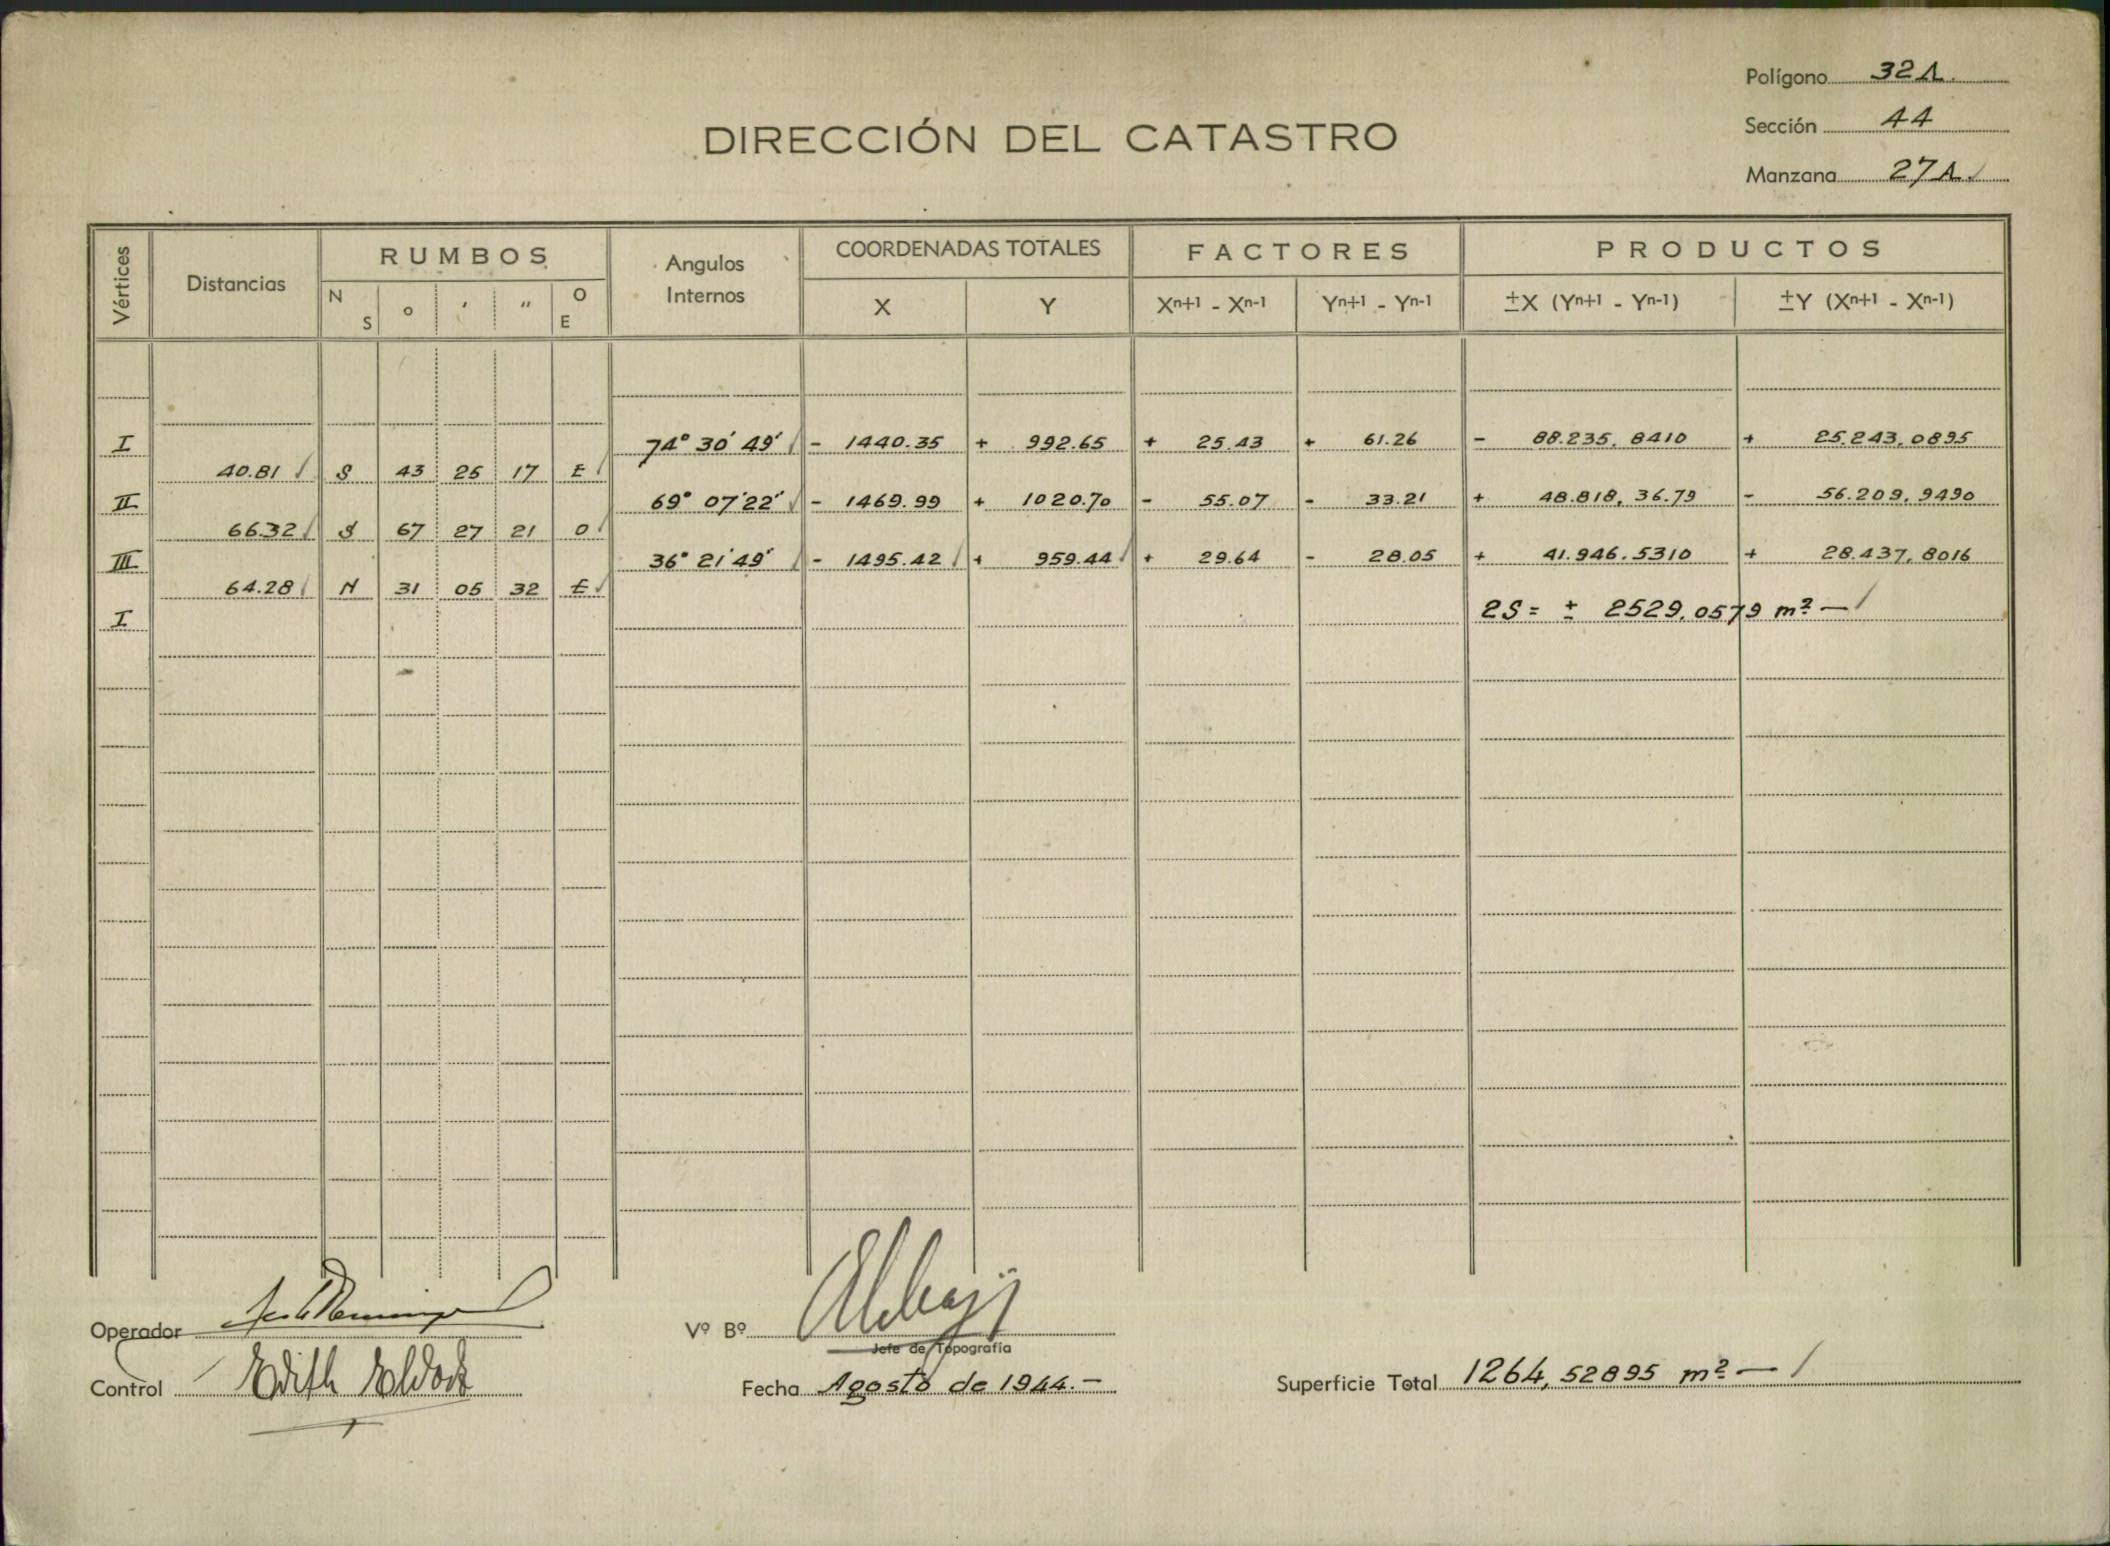 Polígono 32A.
Sección 44
Manzana 27A.
DIRECCIÓN DEL CATASTRO
Vértices Distancias RUMBOS Angulos Internos COORDENADAS TOTALES FACTORES PRODUCTOS
N S o ′ ″ O E X Y Xn+1 - Xn-1 Yn+1 - Yn-1 ±X (Yn+1 - Yn-1) ±Y (Xn+1 - Xn-1)
I 74° 30′ 49′ - 1440.35 + 992.65 + 25.43 + 61.26 - 88.235,8410 + 25.243,0895
40.81 S 43 25 17 E
II 69° 07′ 22′ - 1469.99 + 1020.70 - 55.07 - 33.21 + 48.818,36.79 - 56.209,9490
66.32 S 67 27 21 O
III 36° 21′ 49′ - 1495.42 + 959.44 + 29.64 - 28.05 + 41.946.5310 + 28.437,8016
64.28 N 31 05 32 E
I 2S = ± 2529,0579 m² —
Operador
Vº Bº
Jefe de Topografía
Control Edith
Fecha Agosto de 1944.-
Superficie Total 1264,52895 m² —